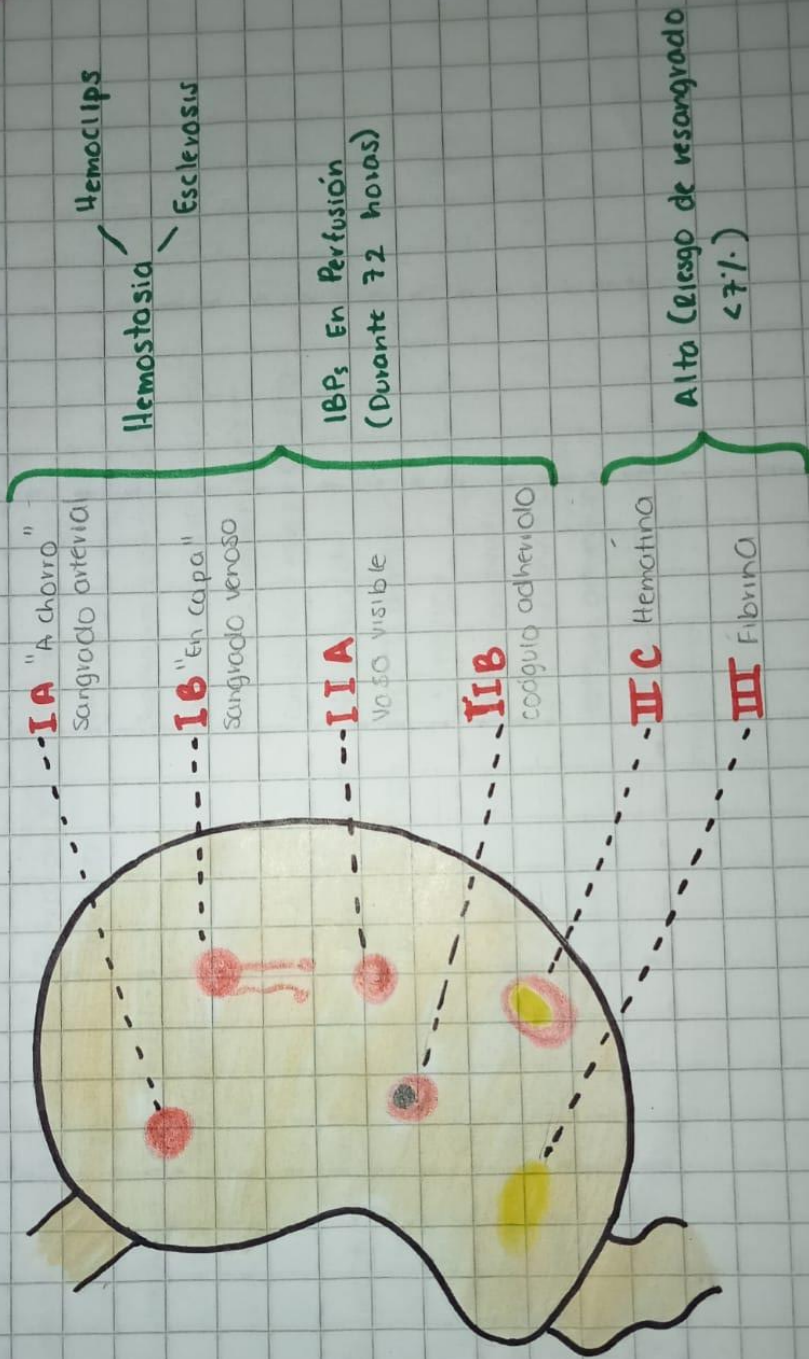 IA "A chorro"
sangrado arterial
IB "En capa"
sangrado venoso
IIA
vaso visible
IIB
coágulo adherido
IIC Hematina
III Fibrina
Hemostasia
Hemoclips
Esclerosis
IBPs En Perfusión
(Durante 72 horas)
Alta (Riesgo de resangrado
<7%)